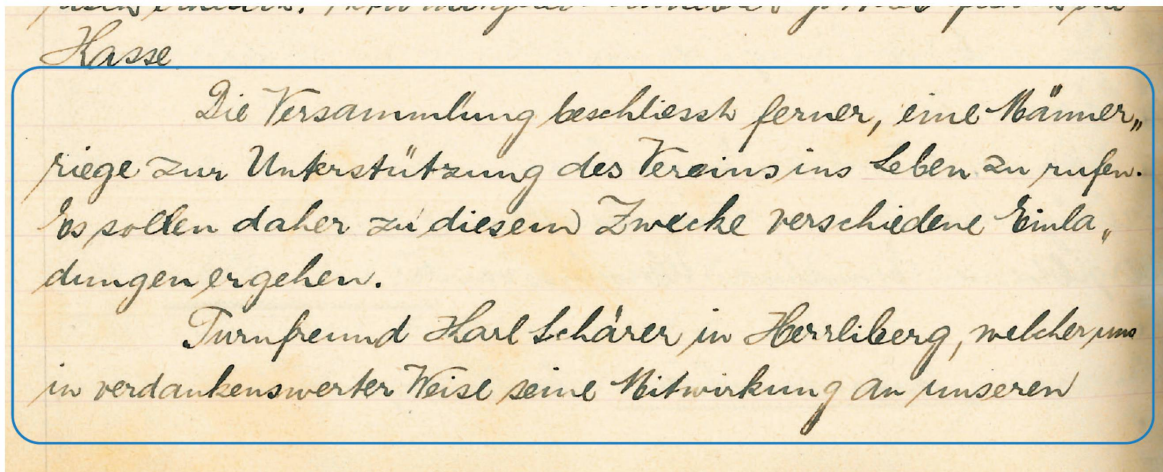 Kasse
Die Versammlung beschliesst ferner, eine Männer„
riege zur Unterstützung des Vereins ins Leben zu rufen.
Es sollen daher zu diesem Zwecke verschiedene Einla„
dungen ergehen.
Turnfreund Karl Schärer in Herrliberg, welcher uns
in verdankenswerter Weise seine Mitwirkung an unseren